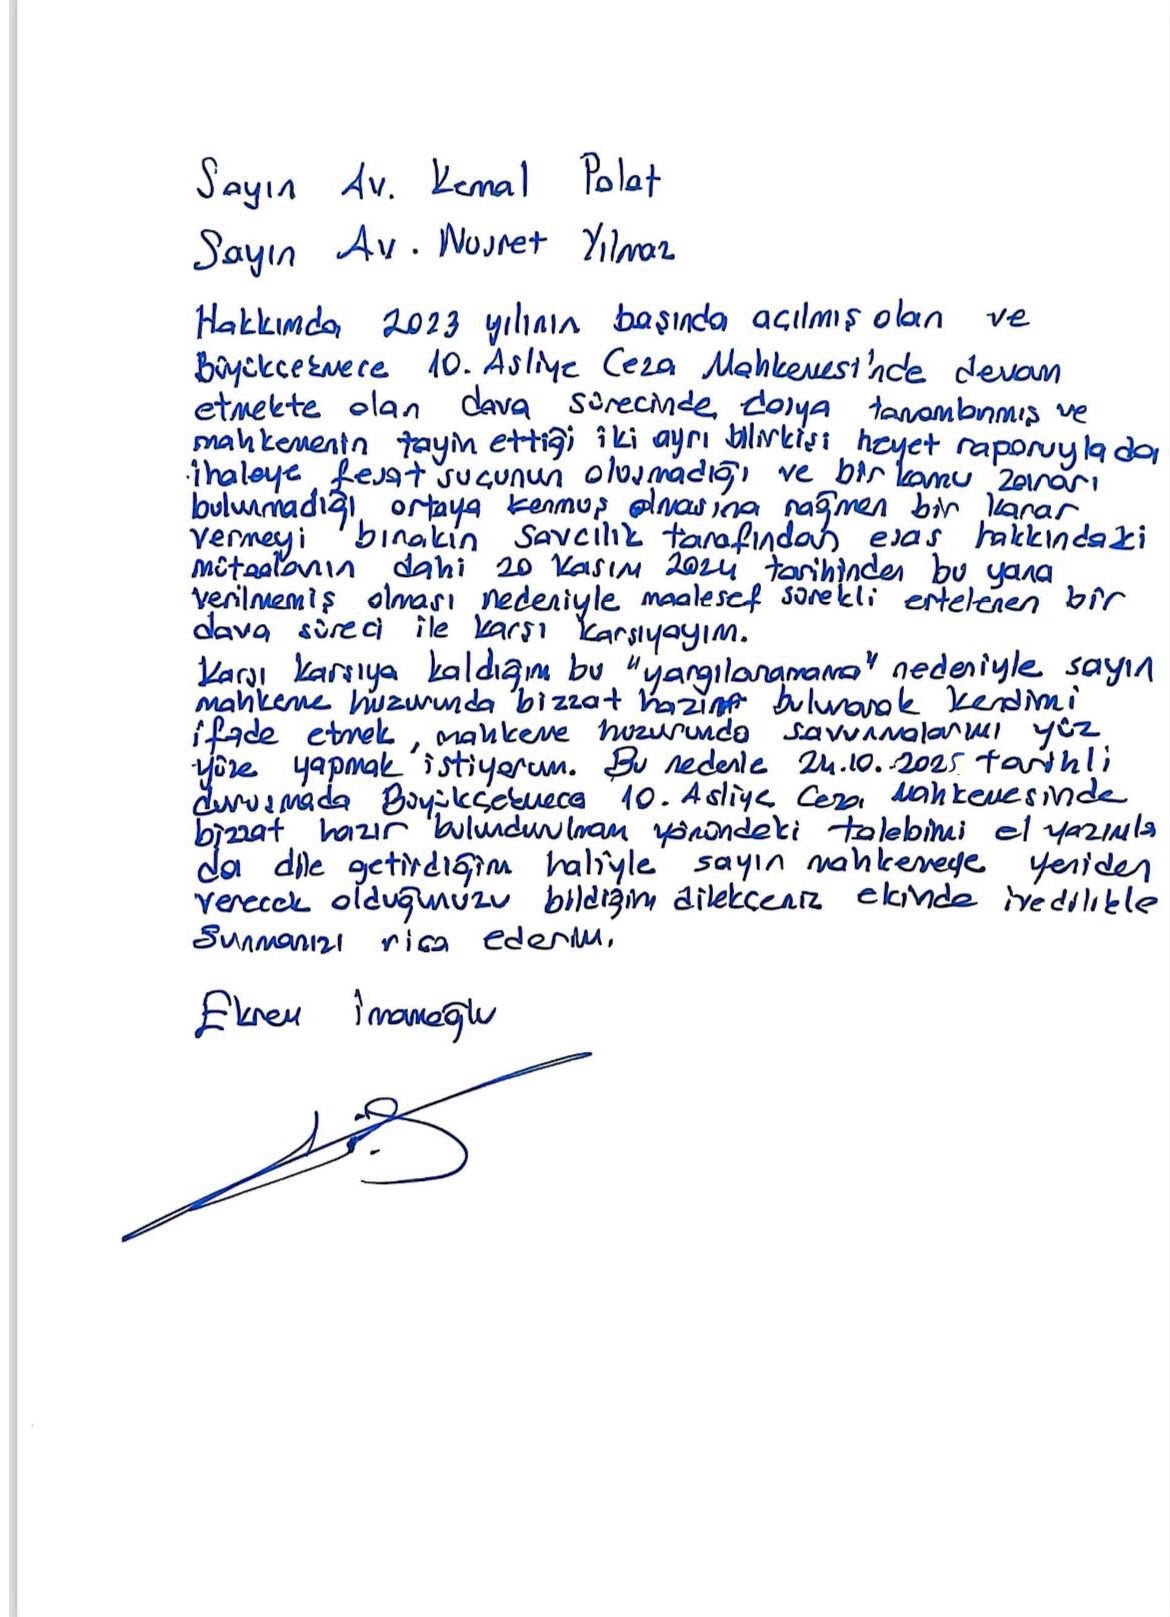 Sayın Av. Kemal Polat
Sayın Av. Nusret Yılmaz
Hakkımda 2023 yılının başında açılmış olan ve
Büyükçekmece 10. Asliye Ceza Mahkemesi'nde devam
etmekte olan dava sürecinde, dosya tamamlanmış ve
mahkemenin tayin ettiği iki ayrı bilirkişi heyet raporuyla da
ihaleye fesat suçunun oluşmadığı ve bir kamu zararı
bulunmadığı ortaya konmuş olmasına rağmen bir karar
vermeyi bırakın savcılık tarafından esas hakkındaki
mütaalanın dahi 20 Kasım 2024 tarihinden bu yana
verilmemiş olması nedeniyle maalesef sürekli ertelenen bir
dava süreci ile karşı karşıyayım.
Karşı karşıya kaldığım bu "yargılanamama" nedeniyle sayın
mahkeme huzurunda bizzat hazır bulunarak kendimi
ifade etmek, mahkeme huzurunda savunmalarımı yüz
yüze yapmak istiyorum. Bu nedenle 24.10.2025 tarihli
duruşmada Büyükçekmece 10. Asliye Ceza Mahkemesinde
bizzat hazır bulundurulmam yönündeki talebimi el yazımla
da dile getirdiğim haliyle sayın mahkemeye yeniden
verecek olduğunuzu bildiğim dilekçeniz ekinde ivedilikle
sunmanızı rica ederim.
Ekrem İmamoğlu